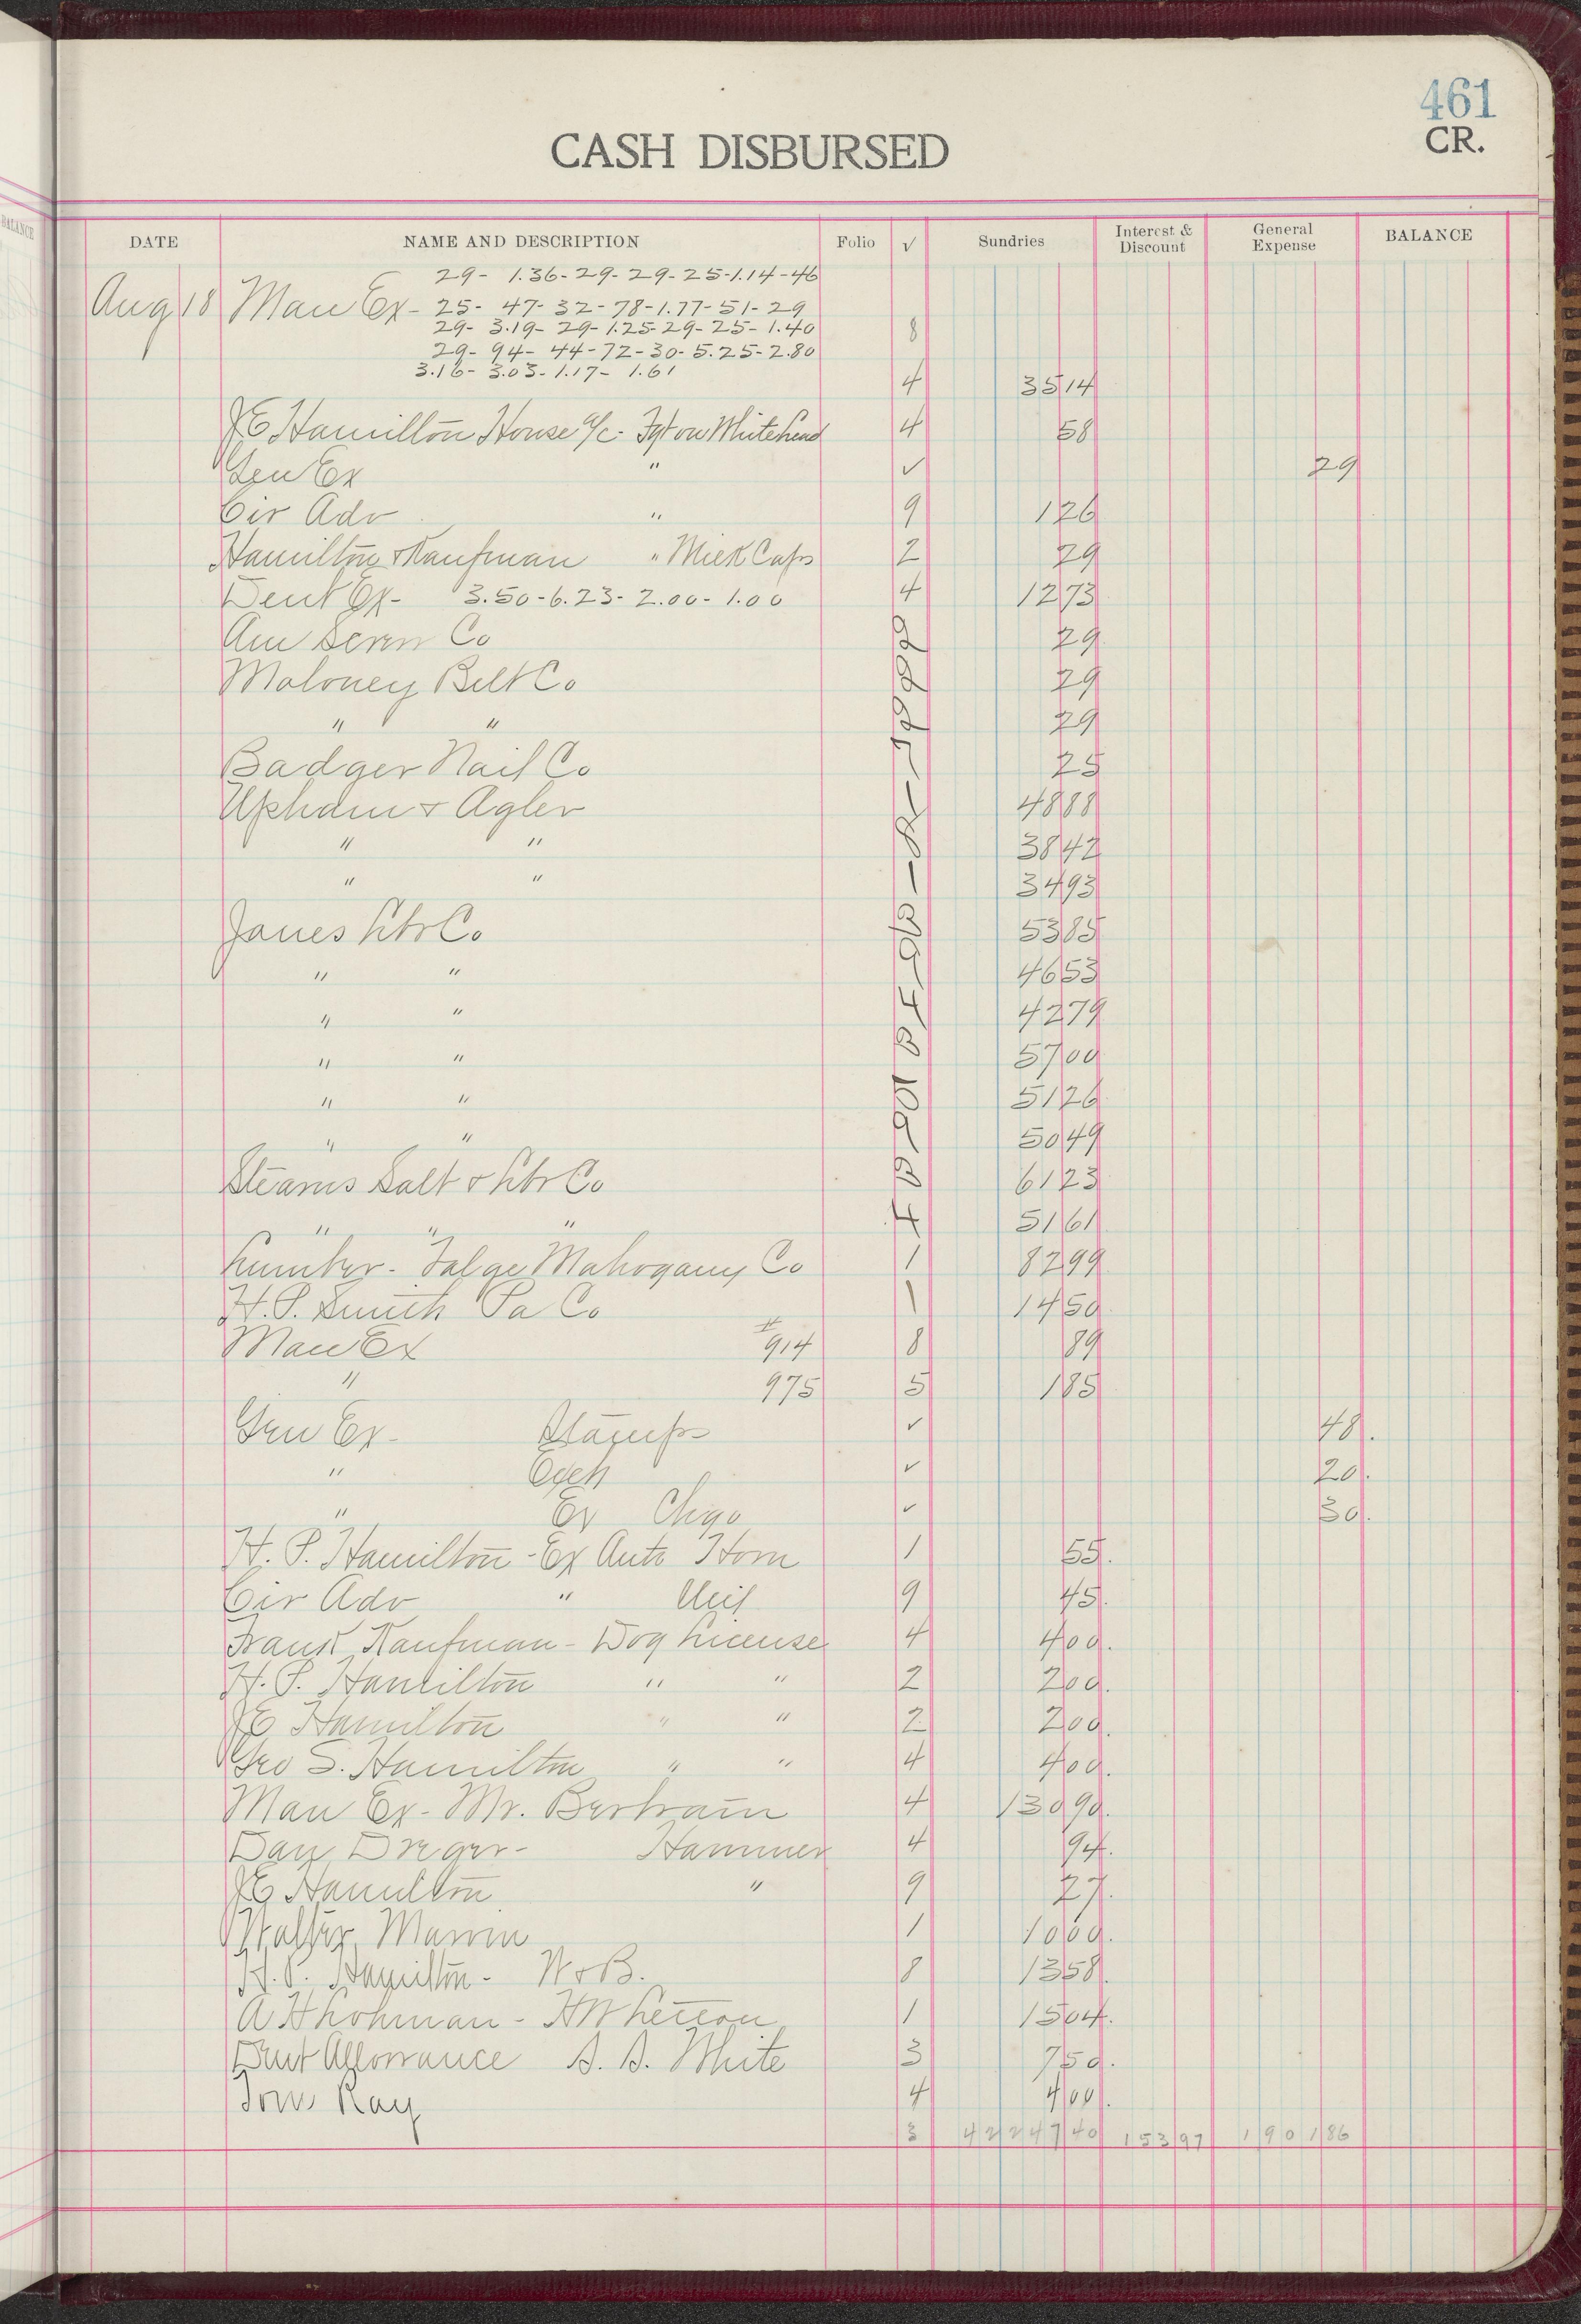 461
CR.
CASH DISBURSED
BALANCE
DATE NAME AND DESCRIPTION Folio √ Sundries Interest & Discount General Expense BALANCE
29- 1.36- 29- 29- 25- 1.14- 46
Aug 18 Man Ex- 25- 47- 32- 78- 1.77- 51- 29
29- 3.19- 29- 1.25- 29- 25- 1.40 8
29- 94- 44- 72- 30- 5.25- 2.80
3.16- 3.03- 1.17- 1.61 4 35 14
JE Hamilton House a/c- Fgt on Whitehead 4 58
Gen Ex " ✓ 29
Cir Adv " 9 1 26
Hamilton & Kaufman " Milk Caps 2 29
Dent Ex- 3.50- 6.23- 2.00- 1.00 4 12 73
Am Screw Co 29
Maloney Belt Co 29
" " 29
Badger Nail Co 25
Upham & Agler 48 88
" " 38 42
" " 34 93
Janes Lbr Co 53 85
" " 46 53
" " 42 79
" " 57 00
" " 51 26
" " 50 49
Stearns Salt & Lbr Co 61 23
" " " 51 61
Lumber- Talge Mahogany Co 1 82 99
H.P. Smith Pa Co 1 14 50
Man Ex #914 8 89
" 975 5 1 85
Gen Ex- Stamps ✓ 48.
" Exch ✓ 20.
" Ex Chgo ✓ 30.
H. P. Hamilton- Ex Auto Horn 1 55.
Cir Adv " 9 45.
Frank Kaufman- Dog License 4 4 00.
H. P. Hamilton " " 2 2 00.
JE Hamilton " " 2 2 00.
Geo S. Hamilton " " 4 4 00.
Man Ex- Mr. Bertram 4 130 90.
Dan Dreger- Hammer 4 94.
JE Hamilton " 9 27.
Walter Mann 1 10 00.
H. P. Hamilton- W & B. 8 13 58.
A H Lohman- 1 15 04.
Dent Allowance S. S. White 3 7 50.
Tom Ray 4 4 00.
3 42247 40 153 97 1901 86